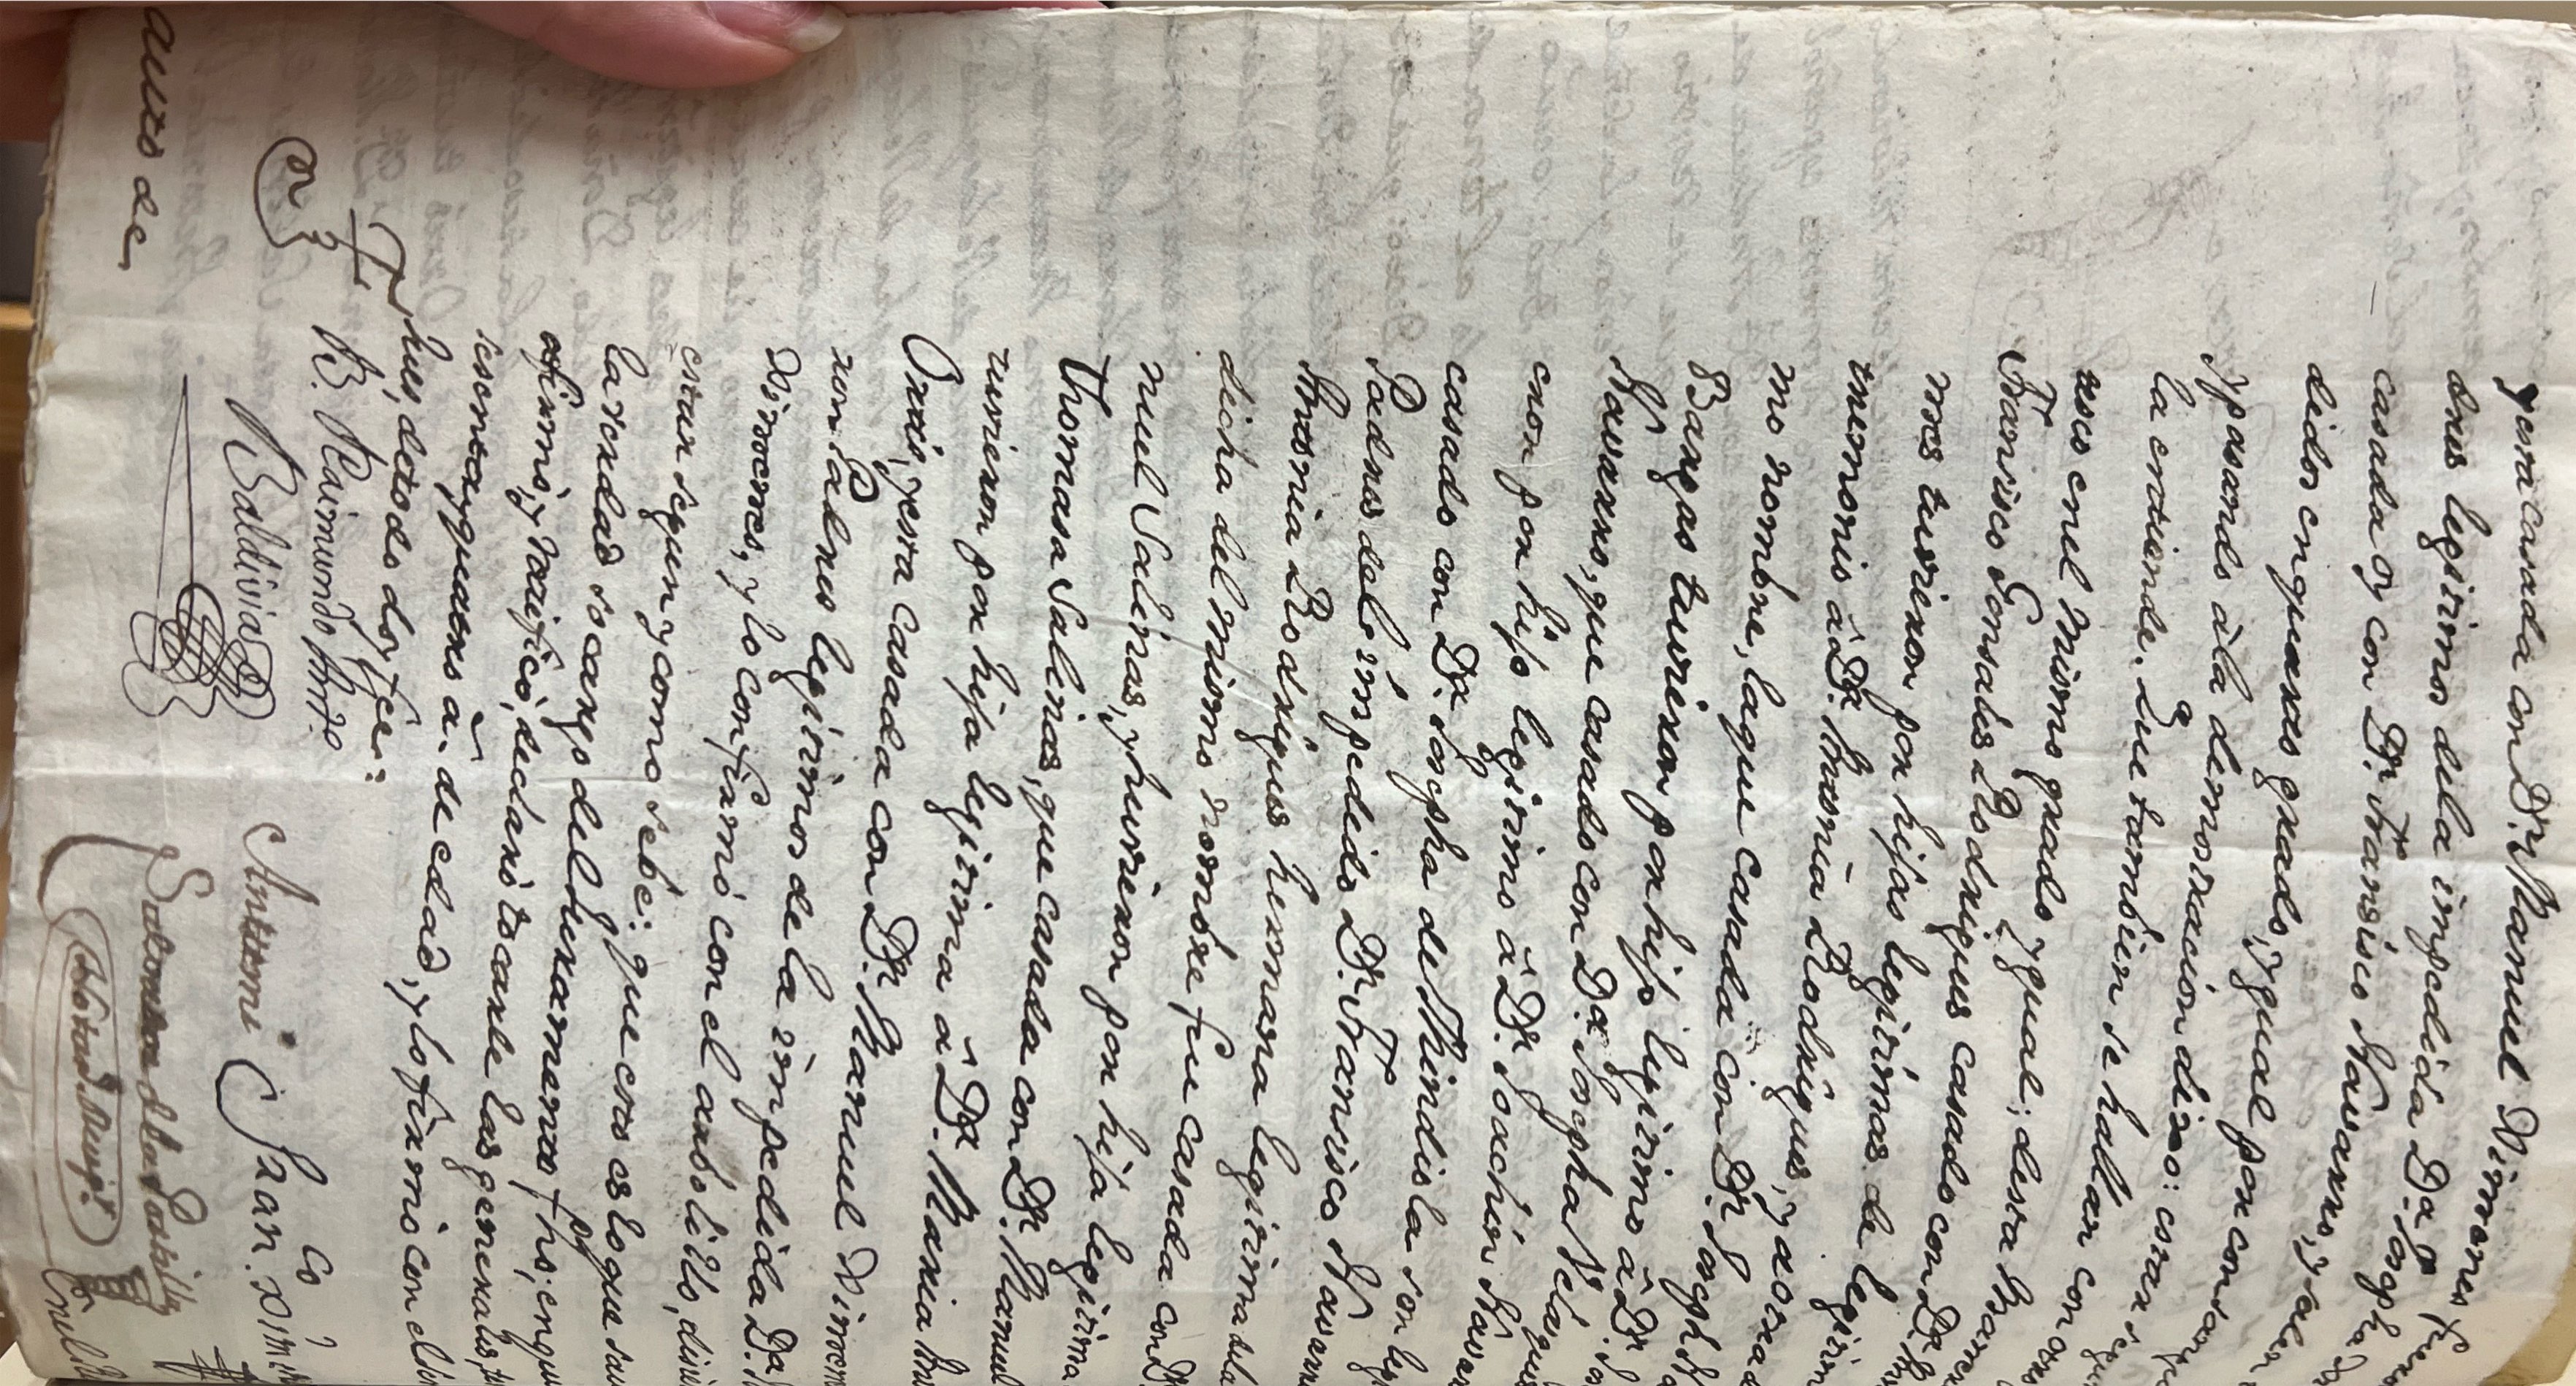 y esta casada con Dn. Manuel Ximenes fuero
dres legitimos dela impedida Da. Josepha Xi
casada oy con Dn. Fransisco Navarro, y salen
didos en quarto grado, y gual por consangui
y pasando âla demostracion dixo: estar segun
la entiende. Que tambien se hallan con otro
tesco enel mismo grado y gual; desta Maner
Fransisco Gonsales Rodrigues casado con Da.
mes tuvieron por hijas legitimas de legitim
tremonio â Da. Antonia Rodrigues, y a otra d
mo nombre, laque casada con Dn. Joseph Na
Bargas tuvieron por hijo legitimo â Dn. Jos
Navarro, que casado con Da. Josepha Velasques
eron por hijo legitimo â Dn. Joachin Navar
casado con Da. Josepha de Thindiola son legi
Padres del impedido Dn. Fransisco Navarro
Antonia Rodrigues hermana legitima dela
dicha del mismo nombre fue casada con D
nuel Salinas, y huvieron por hija legitima
Thomasa Salinas, que casada con Dn. Manuel
tuvieron por hija legitima â Da. Maria An
Ortis, y esta casada con Dn. Manuel Ximen
ron Padres legitimos de la impedida Da. J
Ximenes, y lo confirmó con el arbolillo, disie
estar segun y como sebe: que esto es lo que sav
la verdad so cargo del Juramento fho; enque
afirmò, y ratificò, declarò tocarle las generales, te
sesenta y quatro a. de edad, y lo firmò con el
hues, de todo doy fee:
B. Raimundo Anto.
Baldivia
Antemi Franco. Xime
Salvador dela Portilla
Notao. Recepr.
auto de
Enel R